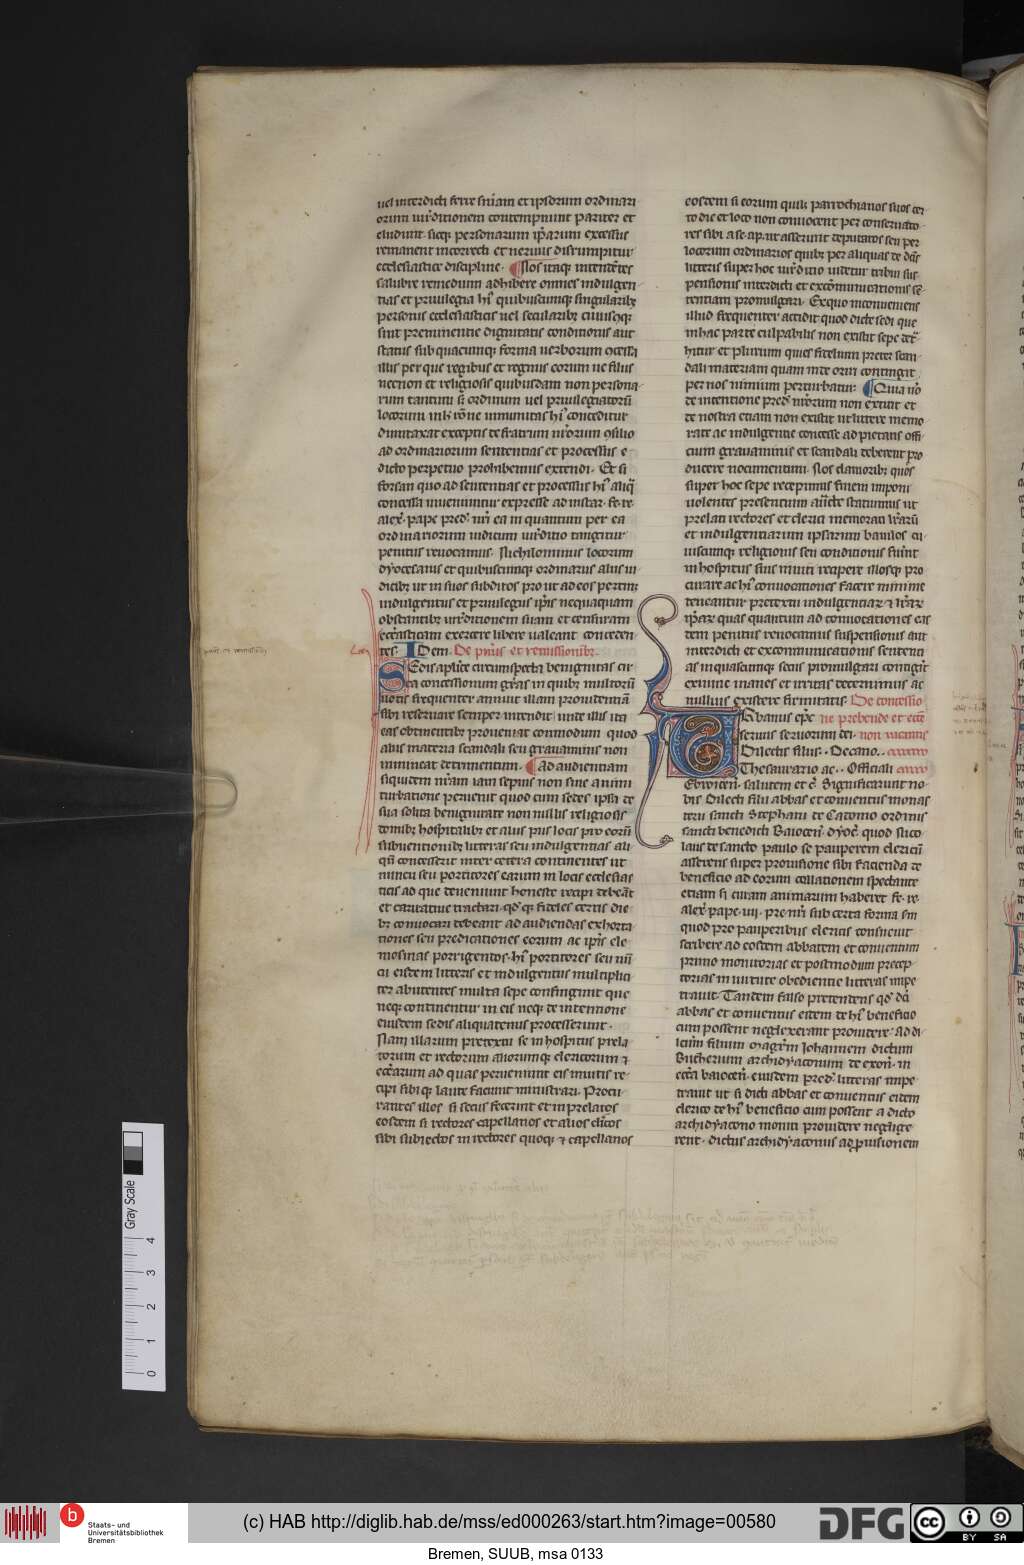 uel interdicti ferre sn̄iam et ipsorum ordinari
orum iur̄ditionem contempnunt pariter et
eludunt. sicq; personarum ip̄arum excessus
remanent incorrecti et neruus disrumpitur
ecclesiastice discipline. ¶ Nos itaq; intendētes
salubre remedium adhibere omnes indulgen
tias et priuilegia hi⁹ quibuscumq; singularibꝫ
personis ecclesiasticis uel secularibꝫ cuiuscq;
sint preminentie dignitatis conditionis aut
status sub quacumq; forma uerborum 9cessa
illis per que regibus et reginis eorum ue filiis
necnon et religiosis quibusdam non persona
rum tantum sꝫ ordinum uel priuilegiatorū
locorum
dumtaxat exceptis de fratrum nr̄orum 9silio
ad ordinariorum sententias et processus e
dicto perpetuo prohibemus extendi. Et si
forsan quo ad sententias et processus hi⁹ aliq̄
concessa inueniuntur expresse ad instar. fe. re.
alex̄. pape pred̄. nr̄i ea in quantum per ea
ordinariorum iudicum iur̄ditio tangitur
penitus reuocamus. Nichilominus locorum
dyocesanis et quibuscumq; ordinariis aliis iu
dicibꝫ ut in suos subditos pro ut ad eos pertinꝫ
indulgentiis et priuilegiis ip̄is nequaquam
obstantibꝫ iur̄ditionem suam et censuram
ecc̄iasticam exercere libere ualeant conceden
tes. IDem. De pn̄iis et remissionibꝫ.
SEdis ap̄lice circumspecta benignitas cir
ca concessionum gr̄as in quibꝫ multorū
uotis frequenter annuit illam prouidentiā
sibi reseruare semper intendit unde illis ita
eas obtinentibꝫ proueniat commodum quod
aliis materia scandali seu grauaminis non
immineat detrimentum. ¶ Ad audientiam
siquidem nr̄am iam sepius non sine animi
turbatione peruenit quod cum sedes ipsa de
sua solita benignitate non nullis religiosis
domibꝫ hospitalibꝫ et aliis piis locis pro eorū
subuentionibꝫ litteras seu indulgentias ali
qn̄ concesserit inter cetera continentes ut
nuncii seu portitores earum in locis ecclesias
ticis ad que deueniunt honeste recipi debeāt
et caritatiue tractari. qd̄ q; fideles certis die
bꝫ conuocari debeant ad audiendas exhorta
tiones seu predicationes eorum ac ip̄is ele
mosinas porrigentos. hi⁹ portitores seu nū
cii eisdem litteris et indulgentiis multiplici
ter abutentes multa sepe confingunt que
neq; continentur in eis neq; de intentione
eiusdem sedis aliquatenus processerunt.
Nam illarum pretextu se in hospitiis prela
torum et rectorum aliorumq; clericorum ⁊
ecc̄arum ad quas perueniunt eis inuitis re
cipi sibi q; laute faciunt ministrari. Procu
rantes illos si secus fecerint et in prelatos
eosdem si rectores capellanos et alios cl̄icos
sibi subiectos in rectores quoq; ⁊ capellanos
eosdem si eorum quilꝫ parrochianos suos cer
to die et loco non conuocent per conseruato
res sibi a se. ap. ut asserunt deputatos seu per
locorum ordinarios quibꝫ per aliquas de dc̄is
litteris super hoc iur̄ditio uidetur tribui sus
pensionis interdicti et excōmunicationis sē
tentiam promulgari. Ex quo inconueniens
illud frequenter accidit quod dicte sedi que
in hac parte culpabilis non existit sepe det̄
hitur et plurium quies fidelium preter scan
dali materiam quam inde oriri contingit
per nos nimium perturbatur. ¶ Quia uō
de intentione pred̄. nr̄orum non extitit et
de nostra etiam non existit ut littere memo
rate ac indulgentie concesse ad pietatis offi
cium grauaminis et scandali deberent pro
ducere nocumentum. Nos clamoribꝫ quos
super hoc sepe recepimus finem imponi
uolentes presentium auct̄e statuimus ut
prelati rectores et clerici memorati lrārū
et indulgentiarum ipsarum baiulos cu
iuscumq; religionis seu conditionis fuīnt
in hospitiis suis inuiti recipere illosq; pro
curare ac hi⁹ conuocationes facere minime
teneantur pretextu indulgentiaꝝ ⁊ lrāꝝ
ip̄aꝝ quas quantum ad conuocationes eas
dem penitus reuocamus suspensionis aut
interdicti et excommunicationis sententi
as in quascumq; secus promulgari contigīt
ex nunc inanes et irritas decernimus ac
nullius existere firmitatis De concessio
VRbanus ep̄c ne prebende et ecc̄e
seruus seruorum dei. non uacantis
Dilectis filiis. . Decano. .
Thesaurario ac. . Officiali
Ebroicen̄. salutem et c̄. Significarunt no
bis Dilecti filii abbas et conuentus monas
terii sancti Stephani de Cadomo ordinis
sancti benedicti Baiocen̄. dyoc̄. quod Nico
laus de sancto paulo se pauperem clericū
asserens super prouisione sibi facienda de
beneficio ad eorum collationem spectante
etiam si curam animarum haberet fe. re.
alex̄. pape. iiij. pre. nr̄i sub certa forma sm̄
quod pro pauperibus clericis consueuit
scribere ad eosdem abbatem et conuentum
primo monitorias et postmodum precep
torias in uirtute obedientie litteras impe
trauit. Tandem falso pretendens qd̄ dc̄i
abbas et conuentus eidem de hi⁹ beneficio
cum possent neglexerant prouidere. ad di
lectum filium magr̄m Iohannem dictum
Bucherium archidyaconum de exon̄. in
ecc̄a baiocen̄. eiusdem pred̄. litteras impe
trauit ut si dicti abbas et conuentus eidem
clerico de hi⁹ beneficio cum possent a dicto
archidyacono moniti prouidere neglige
rent. dictus archidyaconus ad ꝓuisionem
Gray Scale
0 1 2 3 4
b Staats- und
Universitätsbibliothek
Bremen
(c) HAB http://diglib.hab.de/mss/ed000263/start.htm?image=00580
DFG
cc BY SA
Bremen, SUUB, msa 0133